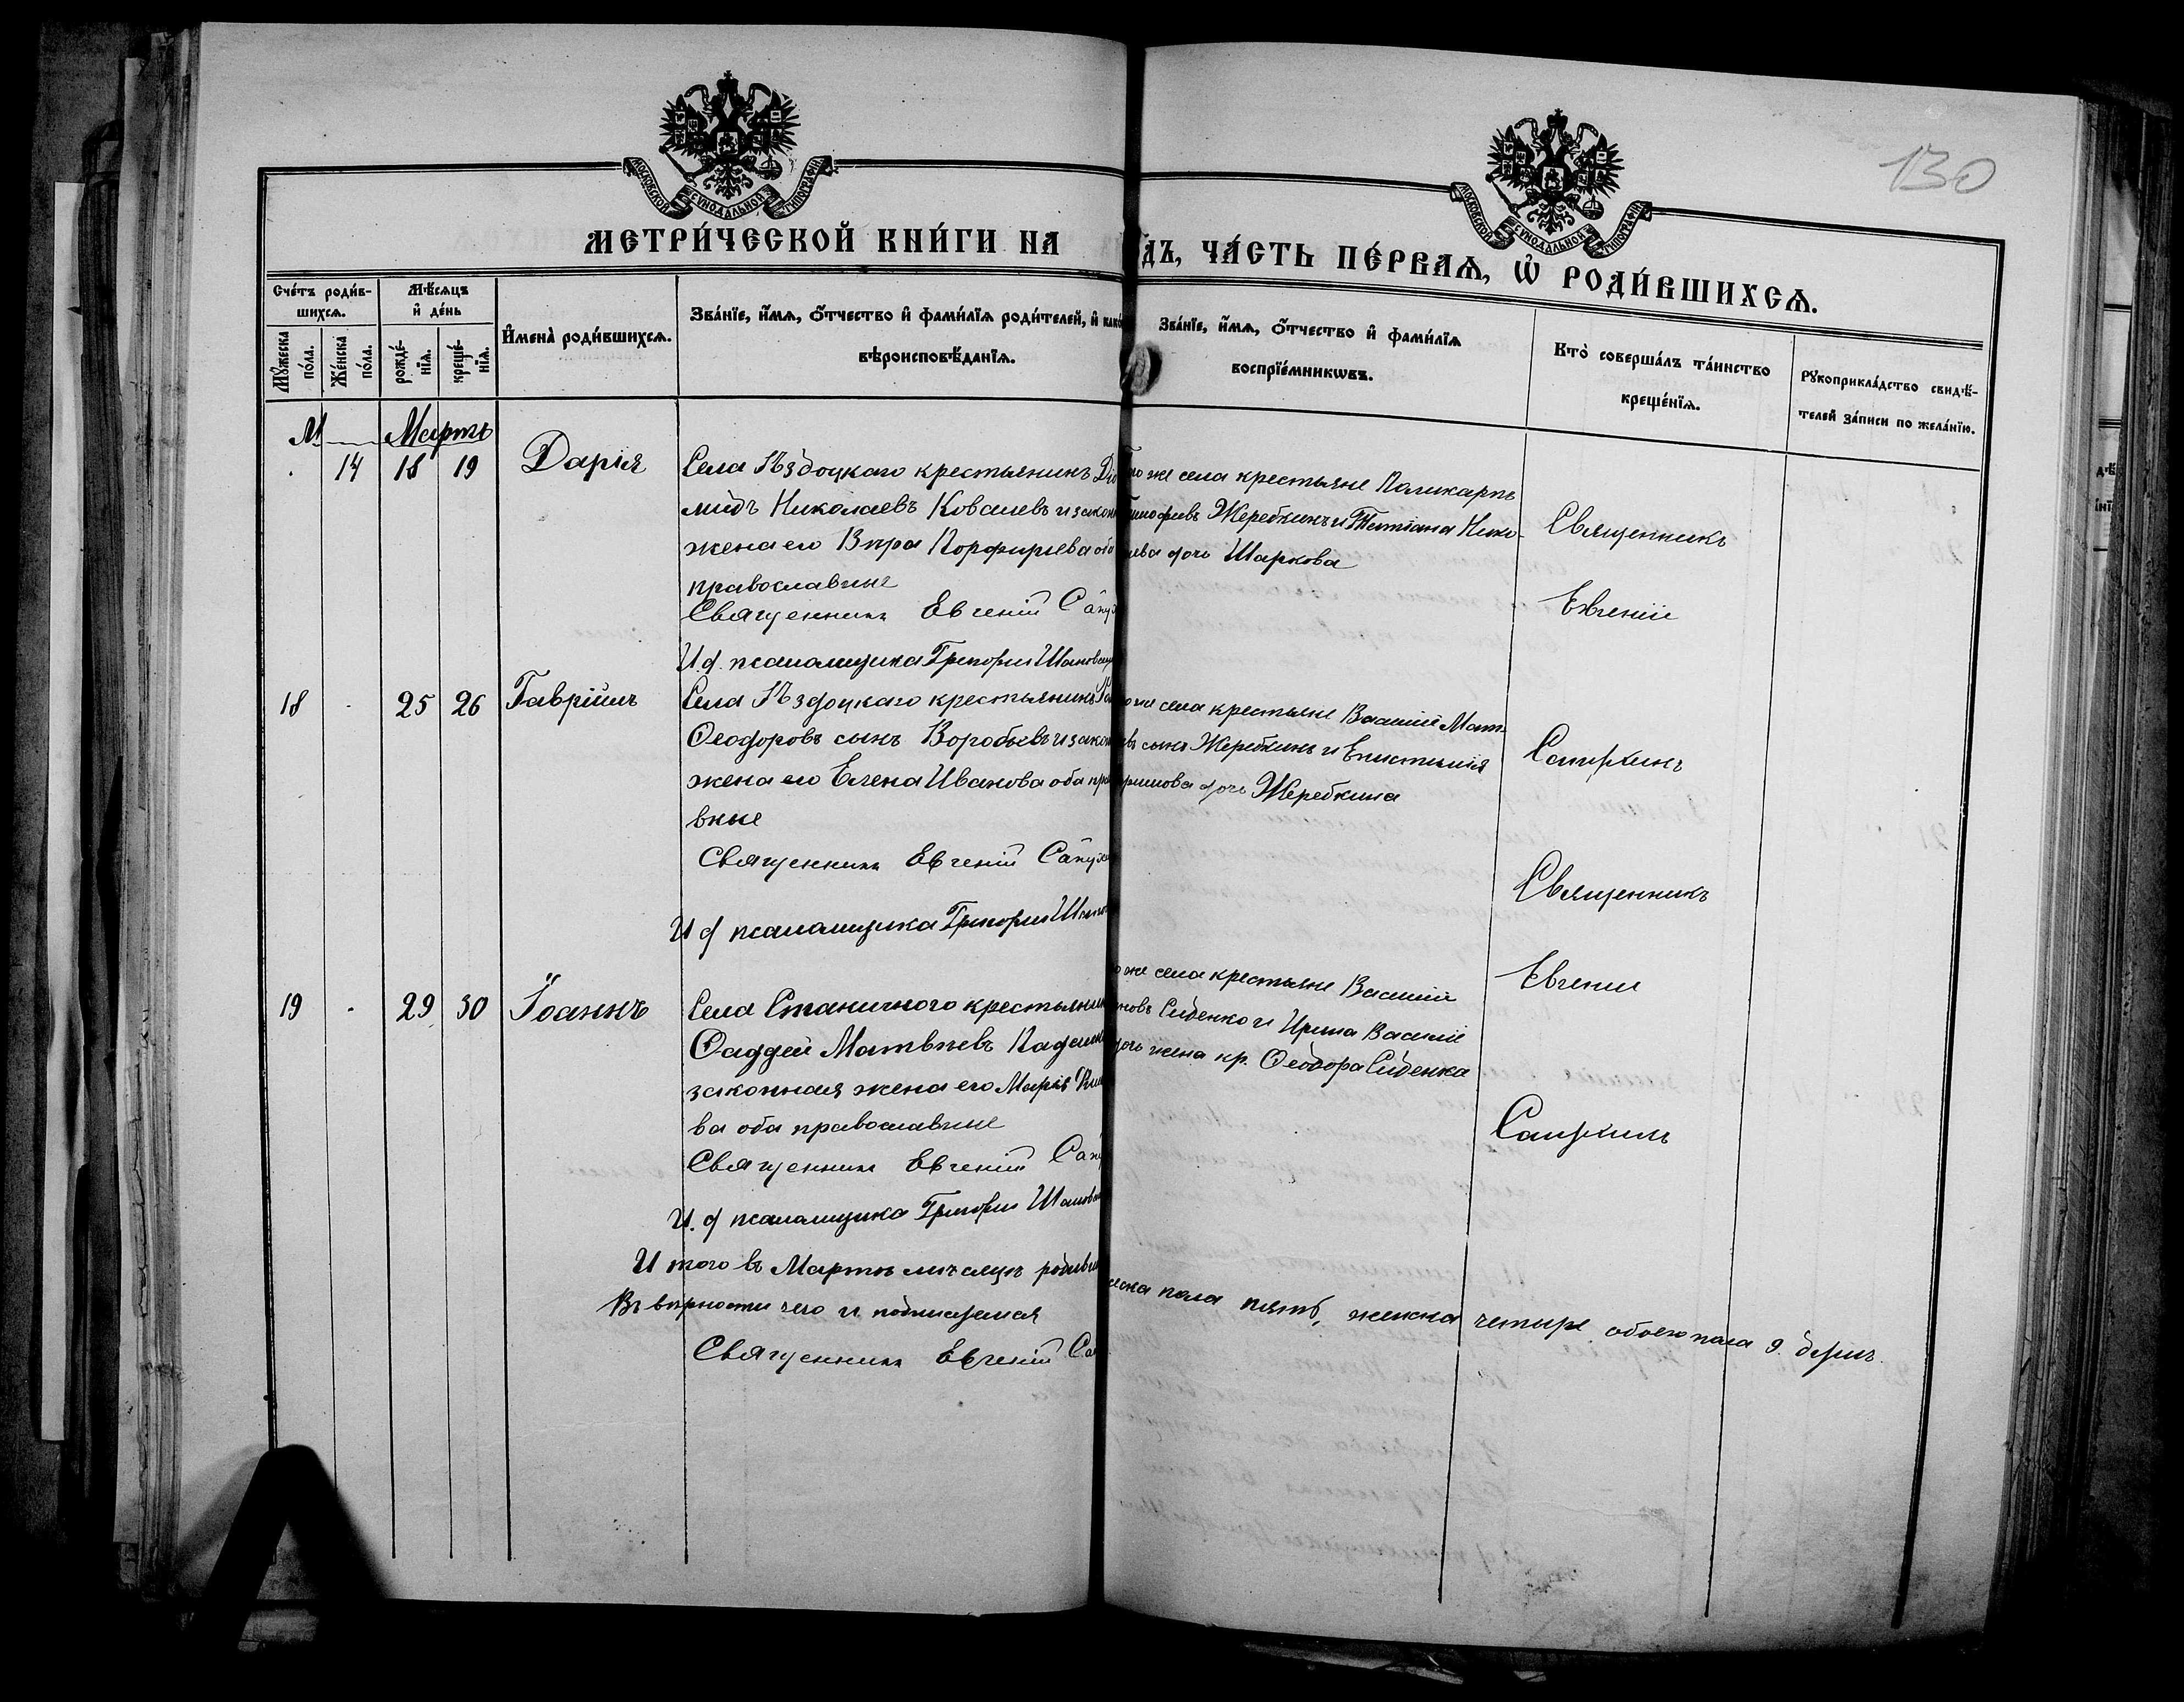 130
МОСКОВСКОЙ СѴНОДАЛЬНОЙ ТИПОГРАФІИ
МОСКОВСКОЙ СѴНОДАЛЬНОЙ ТИПОГРАФІИ
МЕТРИ́ЧЕСКОЙ КНИ́ГИ НА
ДЪ, ЧА́СТЬ ПЕ́РВАѦ, Ѡ҆ РОДИ́ВШИХСѦ.
Сче́тъ роди́в-
шихсѧ.
Мѣ́сѧцъ
и҆ де́нь
Мꙋ́жеска
по́ла.
Же́нска
по́ла.
рожде́-
нїѧ.
креще́-
нїѧ.
И҆мена̀ роди́вшихсѧ.
Зва́нїе, и҆́мѧ, ѻ҆́тчество и҆ фами́лїѧ роди́телей, и҆ како
вѣроисповѣ́данїѧ.
Зва́нїе, и҆́мѧ, ѻ҆́тчество и҆ фами́лїѧ
воспрїе́мникѡвъ.
Кто̀ соверша́лъ та́инство
креще́нїѧ.
Рꙋкоприкла́дство свидѣ́-
телей за́писи по жела́нїю.
М Мартъ
14 18 19 Дарія
Села Ѣздоцкаго крестьянинъ Діо
мидъ Николаевъ Ковалевъ и закон
жена его Вѣра Порфирьева оба
православные
Священникъ Евгеній Сапу
И. д. псаломщика Григорій Шаповал
того же села крестьяне Поликарпъ
Тимофеевъ Жеребкинъ и Татіана Нико-
аева дочь Шаркова
Священникъ
Евгеній
18 25 26 Гавріилъ
Села Ѣздоцкаго крестьянинъ
Ѳеодоровъ сынъ Воробьевъ и закон
жена его Елена Иванова оба пра
вные
Священникъ Евгеній Сапу
И д псаломщика Григорій Шапо
о же села крестьяне Василій Мат-
евъ сынъ Жеребкинъ и Епистимія
дочь Жеребкина
Сапухинъ
Священникъ
Евгеній
19 29 30 Іоаннъ
Села Станичного крестьянин
Ѳаддей Матвѣевъ Падалк
законная жена его Марія
ва оба православные
Священникъ Евгеній Сапу
И. д псаломщика Григорій Шапова
о же села крестьяне Василій
новъ Сиденко и Ирина Василіе
дочь жена кр. Ѳеодора Сиденка
Сапухинъ
Итого въ Мартѣ мѣсяцѣ родивш
еска пола пять, женска четыре обоего пола 9. душъ.
Въ вѣрности чего и подписуемся
Священникъ Евгеній Са